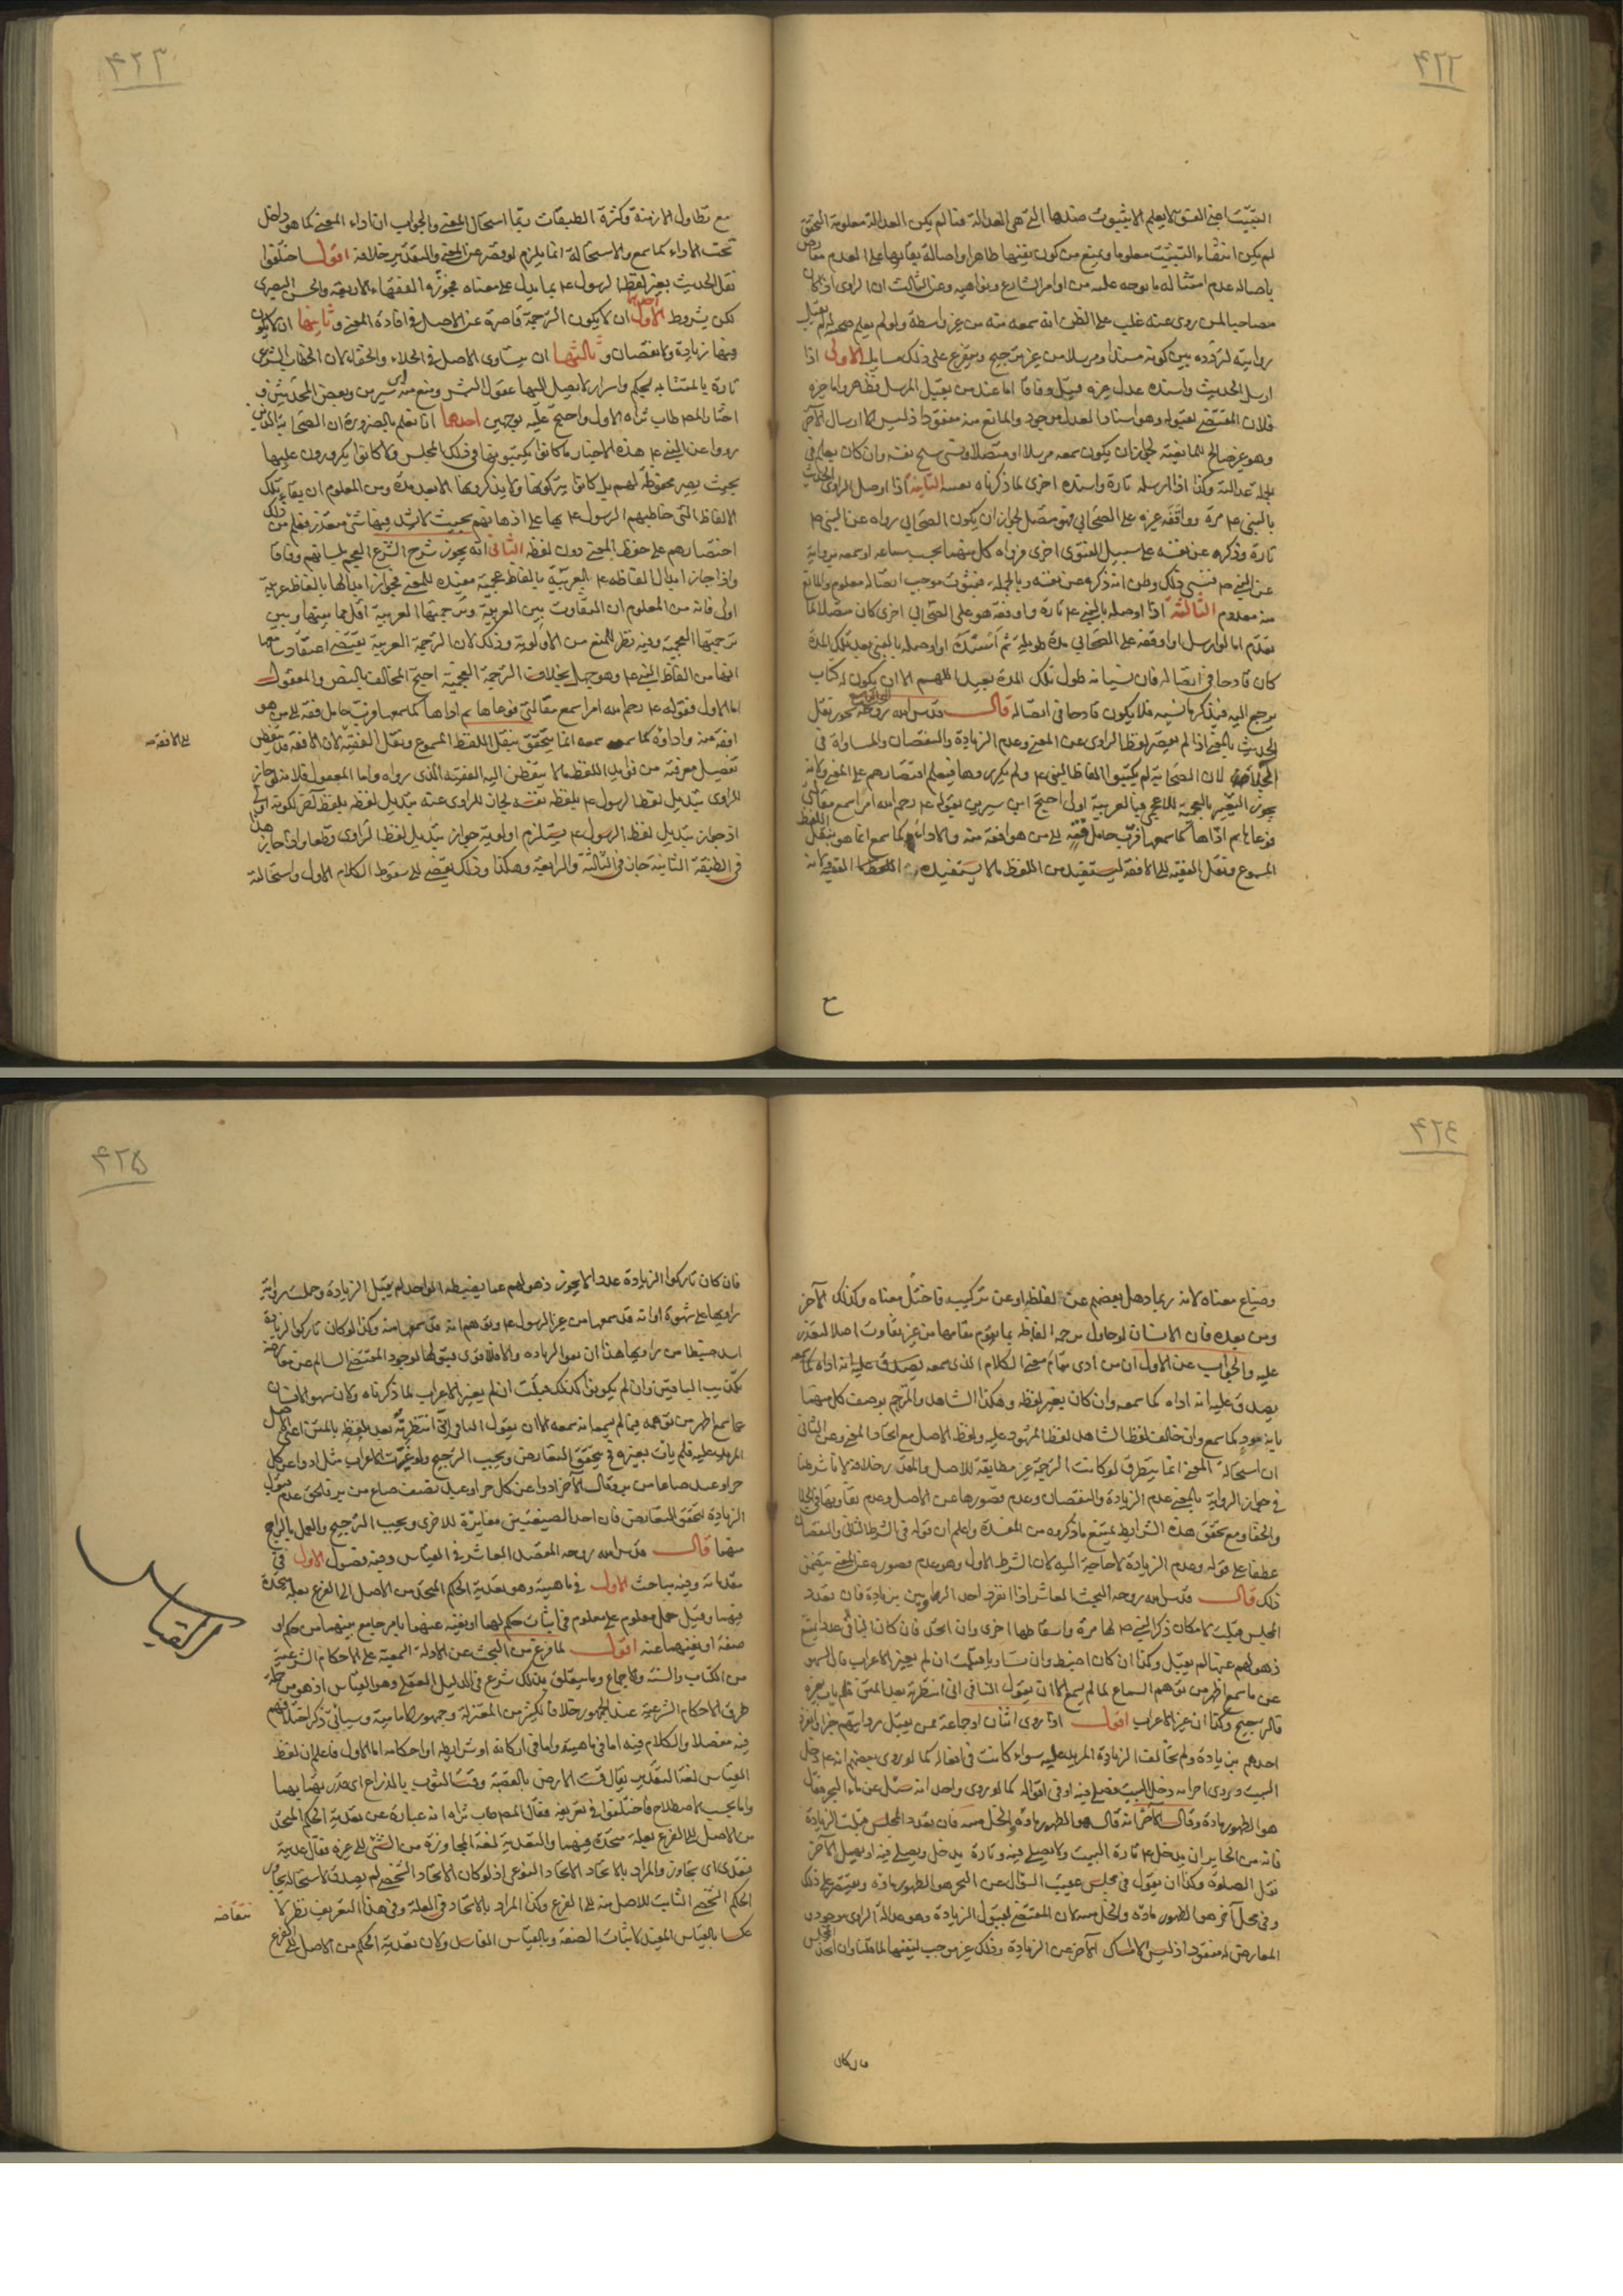 ٤٢٢
التثبت اجنى الفسق لا يعلم الا بثبوت ضدها التى هى العدالة فما لم يكن العدالة معلومة التحقق
لم يكن انتفاء التثبت معلوما ويمنع من كون نفيها ظاهرا واصالة بقائها على العدم معارض
باصالة عدم امتثاله ما توجه عليه من اوامر الشارع ونواهيه وعن الثالث ان الراوى اذا كان
مصاحبا لمن روى عنه غلب على الظن انه سمعه منه من غير واسطة ولو لم يعلم صحبته لم تقبل
روايته لتردده بين كونه مسندا ومرسلا من غير ترجيح ويتفرع على ذلك مسايل الاولى اذا
ارسل الحديث واسنده عدل غيره قبل وفاقا اما عند من يقبل المرسل فظاهر واما غيره
فلان المقتضى لقبوله وهو اسناد العدل موجود والمانع منه مفقود اذ ليس الا ارسال الآخر
وهو غير صالح للمانعية لجواز ان يكون سمعه مرسلا او متصلا ونسى شيخ نفسه وان كان يعلم فى
الجملة عدالته وكذا اذا ارسله تارة واسنده اخرى لما ذكرناه بعينه الثانية اذا اوصل الراوى الحديث
بالنبى ع مرة وواقفه غيره على الصحابى فهو متصل لجواز ان يكون الصحابى رواه عن النبى ص
تارة وذكره عن نفسه على سبيل الفتوى اخرى فرواه كل منهما بحسب سماعه او سمعه يرويه
عن النبى ص فنسى ذلك وظن انه ذكره عن نفسه وبالجملة فثبوت موجب اتصاله معلوم والمانع
منه معدوم الثالثة اذا اوصله بالنبى ع تارة واوقفه هو على الصحابى اخرى كان متصلا لما
تقدم اما لو ارسل او اوقفه على الصحابى مدة طويلة ثم اسنده او اوصله بالنبى بعد تلك المدة
كان قادحا فى اتصاله فان نسيانه طول تلك المدة بعيد اللهم الا ان يكون له كتاب
يرجع اليه فيذكر ما نسيه فلا يكون قادحا فى اتصاله قال قدس الله روحه البحث التاسع يجوز نقل
الحديث بالمعنى اذا لم يقصر لفظ الراوى عن المعنى وعدم الزيادة والنقصان والمساواة فى
الجلاء لان الصحابة لم يكتبوا الفاظ النبى ع ولم يكرروها فيعلم اقتصارهم على المعنى ولانه
يجوز التفسير بالعجمية للاعجمى فبالعربية اولى احتج ابن سيرين بقوله ع رحم الله امرأ سمع مقالتى
فوعاها ثم اداها كما سمعها فرب حامل فقه الى من هو افقه منه والاداء كما سمع انما هو بنقل اللفظ
المسموع ونقل الفقيه الى الافقه ليستفيد من اللفظ ما لا يستفيده الفقيه ولانه
ع
٤٢٣
مع تطاول الازمنة وكثرة الطبقات ربما استحال المعنى والجواب ان اداء المعنى كما هو داخل
تحت الاداء كما سمع والاستحالة انما يلزم لو قصر عن المعنى والتقدير خلافه اقول اختلفوا
نقل الحديث بغير لفظ الرسول ع بما يدل على معناه فجوزه الفقهاء الاربعة والحسن البصرى
لكن بشروط احدها الاول ان لا يكون الترجمة قاصرة عن الاصل فى افادة المعنى وثانيها ان لا يكون
فيها زيادة ولا نقصان وثالثها ان يساوى الاصل فى الجلاء والخفاء لان الخطاب الشرعى
تارة بالمتشابه لحكم واسرار لا يصل اليها عقول البشر ومنع منه ابن سيرين وبعض المحدثين و
اختار المص طاب ثراه الاول واحتج عليه بوجهين احدها انا نعلم بالضرورة ان الصحابة الذين
رووا عن النبى ع هذه الاخبار ما كانوا يكتبونها فى ذلك المجلس ولا كانوا يكررون عليها
بحيث يصير محفوظة لهم بل كانوا يتركونها ولا يذكرونها الا بعد مدة ومن المعلوم ان بقاء تلك
الالفاظ التى خاطبهم الرسول ع بها على اذهانهم بحيث لا يشذ منها شئ متعذر فعلم من ذلك
اختصارهم على حفظ المعنى دون لفظه الثانى انه يجوز شرح الشرع للعجم بلسانهم وفاقا
واذا جاز ابدال الفاظه ع العربية بالفاظ عجمية مفيدة للمعنى فجواز ابدالها بالفاظ عربية
اولى فانه من المعلوم ان التفاوت بين العربية وترجمتها العربية اقل مما بينها وبين
ترجمتها العجمية وفيه نظر للمنع من الاولوية وذلك لان الترجمة العربية يقتضى اعتقاد سامعها
انها من الفاظ النبى ع وهو جهل بخلاف الترجمة العجمية احتج المخالف بالنص والمعقول
اما الاول فقوله ع رحم الله امرأ سمع مقالتى فوعاها ثم اداها كما سمعها فرب حامل فقه الى من هو
افقه منه واداؤه كما سمعه انما يتحقق بنقل اللفظ المسموع ونقل الفقيه لان الافقه قد يتفطن
الى الافقه
تفصيل معرفته من فوايد اللفظ ما لا يتفطن اليه الفقيه الذى رواه واما المعقول فلانه لو جاز
للراوى تبديل لفظ الرسول ع بلفظ نفسه لجاز للراوى عنه تبديل لفظه بلفظ آخر لكونه اولى
اذ جواز تبديل لفظ الرسول ع يستلزم اولوية جواز تبديل لفظ الراوى قطعا واذا جاز هذا
فى الطبقة الثانية جاز فى الثالثة والرابعة وهكذا وذلك يفضى الى سقوط الكلام الاول واستحالة
٤٢٤
وضياع معناه لانه ربما ذهل بعضهم عن لفظ او عن تركيب فاختل معناه وكذلك الآخر
ومن بعده فان الانسان لو حاول ترجمة الفاظ بما يقوم مقامها من غير تفاوت اصلا لتعذر
عليه والجواب عن الاول ان من ادى تمام معنى الكلام الذى سمعه يصدق عليه انه اداه كما سمعه
يصدق عليه انه اداه كما سمعه وان كان بغير لفظه وهكذا الشاهد والمترجم يوصف كل منهما
بانه مؤد كما سمع وان خالف لفظ الشاهد لفظ المشهود عليه ولفظ الاصل مع اتحاد المعنى وعن الثانى
ان استحالة المعنى انما يتطرق لو كانت الترجمة غير مطابقة للاصل والمقدر خلافه لانا شرطنا
فى جواز الرواية بالمعنى عدم الزيادة والنقصان وعدم قصورها عن الاصل وعدم تفاوتها فى الجلاء
والخفاء ومع تحقق هذه الشرايط يمتنع ما ذكروه من المفسدة واعلم ان قوله فى الشرط الثانى والنقصان
عطفا على قوله وعدم الزيادة لا حاجة اليه لان الشرط الاول وهو عدم قصوره عن المعنى يتضمن
ذلك قال قدس الله روحه البحث العاشر اذا انفرد احد الراويين بزيادة فان تعدد
المجلس قبلت لامكان ذكر النبى ص لها مرة واسقاطها اخرى وان اتحد فان كان الباقى عددا يمتنع
ذهولهم عنها لم يقبل وكذا ان كان اضبط وان تساويا قبلت ان لم يغير الاعراب فان السهو
عن ما سمع اظهر من توهم السماع لما لم يسمع الا ان يقول النافى انى انتظرته بعد المتن فلم يات بغيره
فالترجيح وكذا ان غير الاعراب اقول اذا روى اثنان او جماعة ممن يقبل روايتهم خبرا وانفرد
احدهم بزيادة ولم تخالف الزيادة المزيد عليه سواء كانت فى افعاله كما لو روى بعضهم انه ع دخل
البيت وروى آخر انه دخل البيت فصلى فيه او فى اقواله كما لو روى واحد انه سئل عن ماء البحر فقال
هو الطهور ماؤه وقال الآخر انه قال هو الطهور ماؤه والحل ميته فان تعدد المجلس قبلت الزيادة
فانه من الجايز ان يدخل ع تارة البيت ولا يصلى فيه وتارة يدخل ويصلى فيه او يهمل الآخر
نقل الصلوة وكذا ان يقول فى مجلس عقيب السؤال عن البحر هو الطهور ماؤه ويقتصر على ذلك
وفى محل آخر هو الطهور ماؤه والحل ميته لان المقتضى لقبول الزيادة وهو عدالة الراوى موجود و
المعارض له مفقود اذ ليس الا امساك الآخر عن الزيادة وذلك غير موجب لنفيها لما قلنا وان اتحد المجلس
فان كان
٤٢٥
فان كان تاركوا الزيادة عددا لا يجوز ذهولهم عما يضبطه الواحد لم يقبل الزيادة وحملت رواية
راويها على سهوه او انه قد سمعها من غير الرسول ع وتوهم انه قد سمعها منه وكذا لو كان تاركوا الزيادة
اشد ضبطا من راويها هذا ان نفوا الزيادة والا فالاقوى قبولها لوجود المقتضى السالم عن معارضة
تكذيب الباقين وان لم يكونوا كذلك قبلت ان لم يغير الاعراب لما ذكرناه ولان سهو الانسان
عما سمع اظهر من توهمه فيما لم يسمع انه سمعه الا ان يقول النافى انى انتظرته بعد تلفظه بالمتن اعنى الاصل
المزيد عليه فلم يات بغيره فيتحقق التعارض ويجب الترجيح ولو غيرت الاعراب مثل ادوا عن كل
حر او عبد صاعا من بر وقال الآخر ادوا عن كل حر او عبد نصف صاع من بر فالحق عدم قبول
الزيادة لتحقق التعارض فان احد الصيغتين مغايرة للاخرى ويجب الترجيح والعمل بالراجح
منهما قال قدس الله روحه المقصد العاشر فى القياس وفيه فصول الاول فى
مقدماته وفيه مباحث الاول فى ماهيته وهو تعدية الحكم المتحد من الاصل الى الفرع بعلة متحدة
فيهما وقيل حمل معلوم على معلوم فى اثبات حكم لهما او نفيه عنهما بامر جامع بينهما من حكم او
القياس
صفة او نفيهما عنه اقول لما فرغ من البحث عن الادلة السمعية على الاحكام الشرعية
من الكتاب والسنة والاجماع وما يتعلق بذلك شرع فى الدليل العقلى وهو القياس اذ هو من جملة
طرق الاحكام الشرعية عند الجمهور خلافا لكثير من المعتزلة وجمهور الامامية وسيأتى ذكر اختلافهم
فيه مفصلا والكلام فيه اما فى ماهيته واما فى اركانه او شرايطه او احكامه اما الاول فاعلم ان لفظ
القياس لغة التقدير يقال قست الارض بالقصبة وقست الثوب بالذراع اى قدرتهما بهما
واما بحسب الاصطلاح فاختلفوا فى تعريفه فقال المص طاب ثراه انه عبارة عن تعدية الحكم المتحد
من الاصل الى الفرع بعلة متحدة فيهما والتعدية لغة المجاوزة من الشئ الى غيره فقال عديته
فتعدى اى تجاوز والمراد بالاتحاد الاتحاد النوعى اذ لو كان الاتحاد الشخصى لم يصدق لاستحالة تجاوز
الحكم الشخصى الثابت للاصل منه الى الفرع وكذا المراد بالاتحاد فى العلة وفى هذا التعريف نظر لا
نتقاضه
عكسا بالقياس المفيد لاثبات الصفة وبالقياس الفاسد ولان تعدية الحكم من الاصل الى الفرع